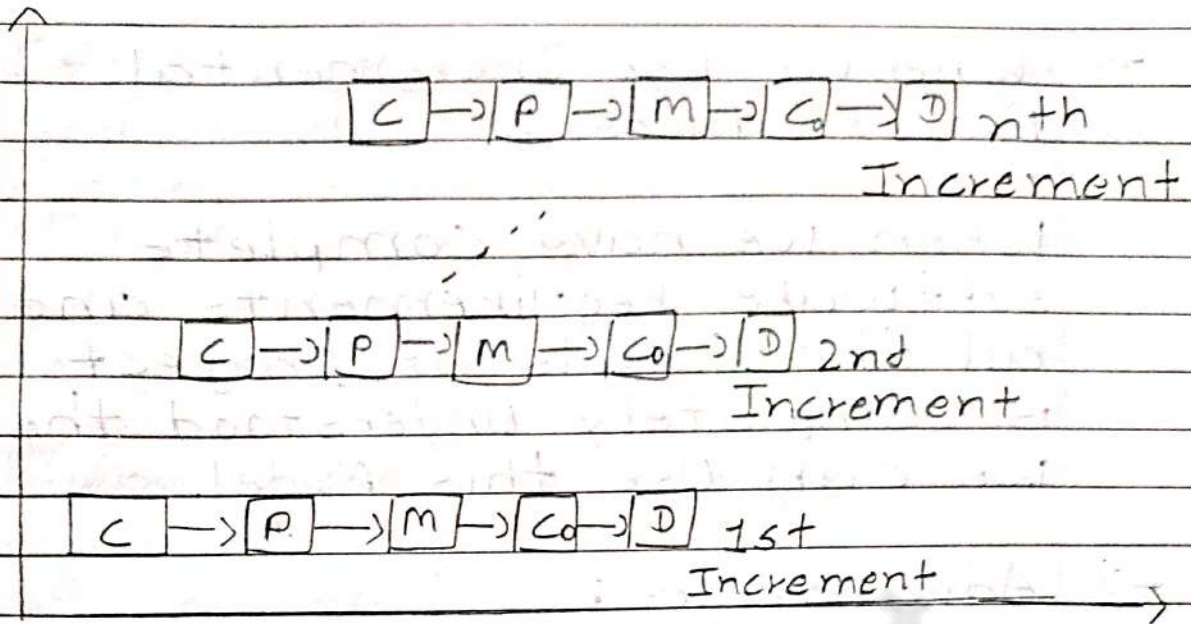 C → P → M → Co → D nth
Increment
C → P → M → Co → D 2nd
Increment
C → P → M → Co → D 1st
Increment